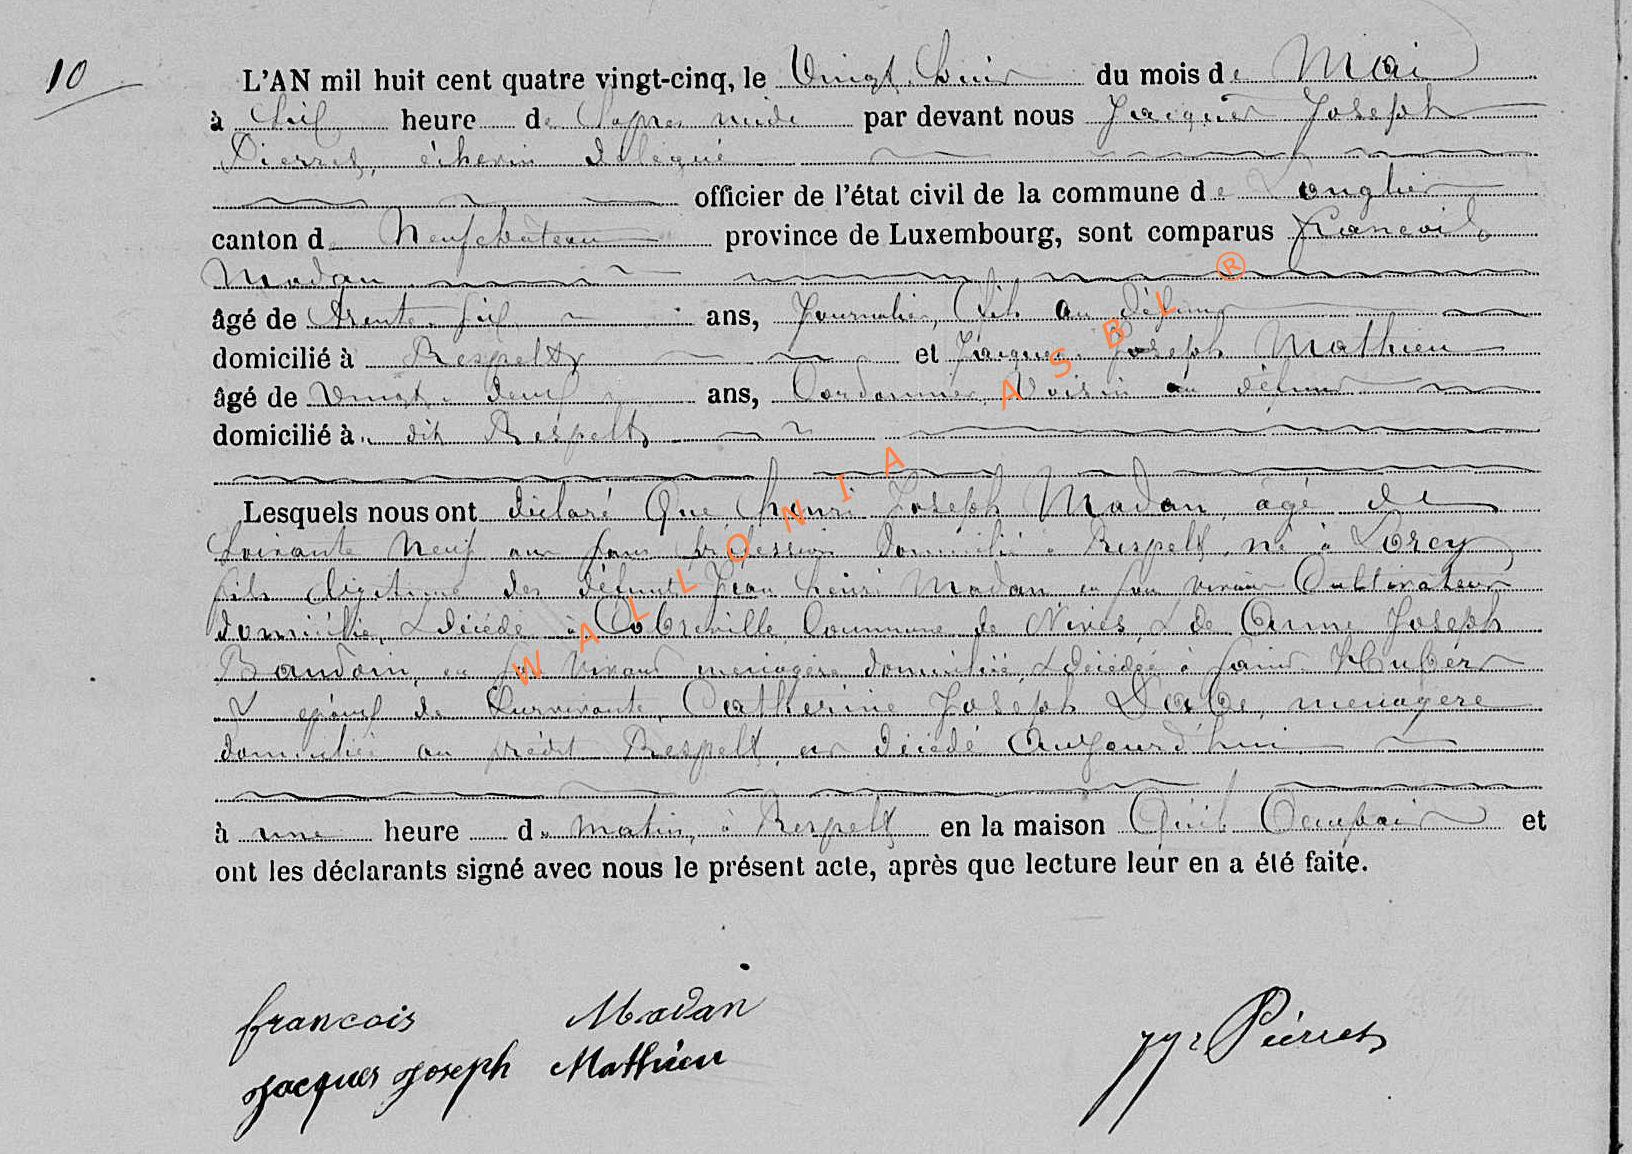 10
L'AN mil huit cent quatre vingt-cinq, le Vingt huit du mois de Mai
à Six heure de l'apres midi par devant nous Jacques Joseph
Pierret, échevin délégué
officier de l'état civil de la commune de Longlier
canton d Neufchateau province de Luxembourg, sont comparus François
Madan
âgé de trente six ans, Journalier, fils au défunt
domicilié à Respelt et Jacques Joseph Mathieu
âgé de Vingt deux ans, Cordonnier, Voisin au défunt
domicilié à dit Respelt
Lesquels nous ont déclaré Que henri Joseph Madan, âgé de
soixante Neuf ans sans profession domicilié à Respelt, né à Lorcy
fils légitime des défunts Jean henri Madan en son vivant Cultivateur
domicilié, & décédé à Cobreville Commune de Nives, & de Anne Joseph
Baudoin, en son vivant menagère domiciliée, & décédée à saint Hubert
époux de Survivante, Catherine Joseph menagère
domiciliée au prédit Respelt, est décédé Aujourd'hui
à une heure du matin, à Respelt en la maison Qu'il Occupait et
ont les déclarants signé avec nous le présent acte, après que lecture leur en a été faite.
francois Madan
Jacques Joseph Mathieu
JJ Pierret
WALLONIA ASBL ®